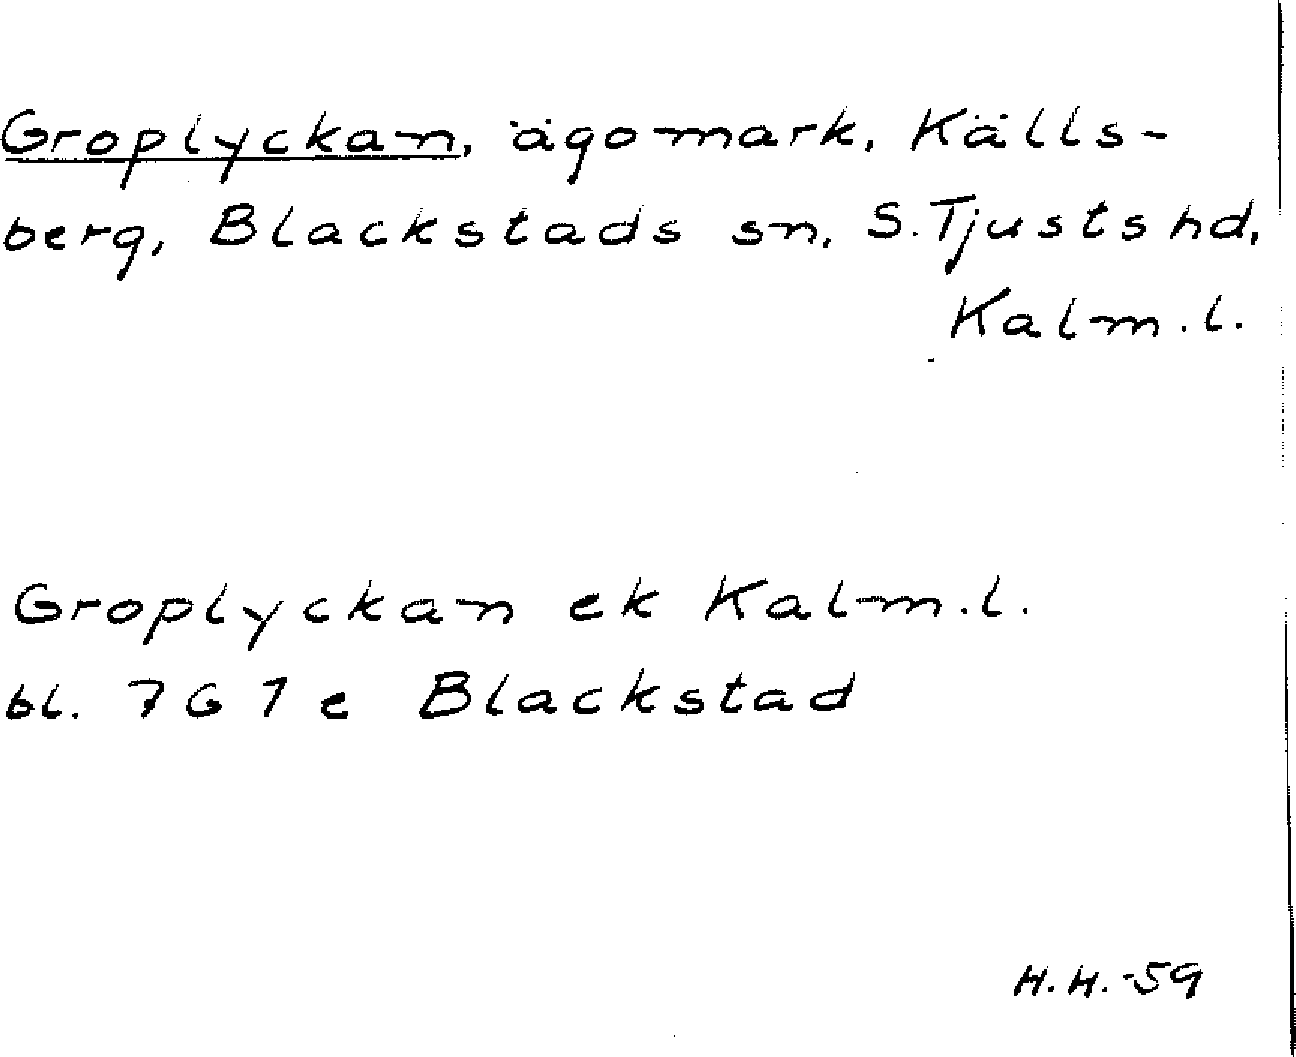 Groplyckan, ägomark, Källs-
berg, Blackstads sn, S. Tjusts hd,
Kalm. l.
Groplyckan ek Kalm. l.
bl. 7G 7e Blackstad
H.H. -59